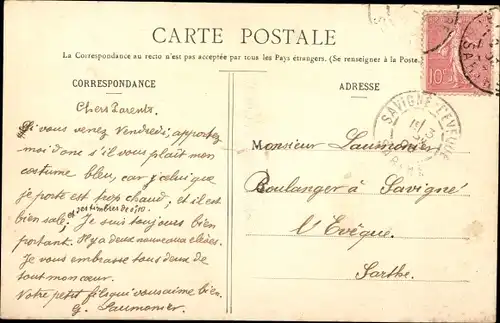 CARTE POSTALE
La Correspondance au recto n'est pas acceptée par tous les Pays étrangers. (Se renseigner à la Poste.
CORRESPONDANCE
Chers Parents
Si vous venez Vendredi, apportez
moi donc s'il vous plaît mon
costume bleu, car celui que
je porte est trop chaud, et il est
et des timbres de 0,10.
bien sale, Je suis toujours bien
portant. Il y a deux nouveaux élèves.
Je vous embrasse tous deux de
tout mon cœur.
Votre petit fils qui vous aime bien.
G. Saumonier.
ADRESSE
Monsieur Saumonier
Boulanger à Savigné
l'Evêque.
Sarthe.
SAVIGNÉ-L'ÉVÊQUE
10c